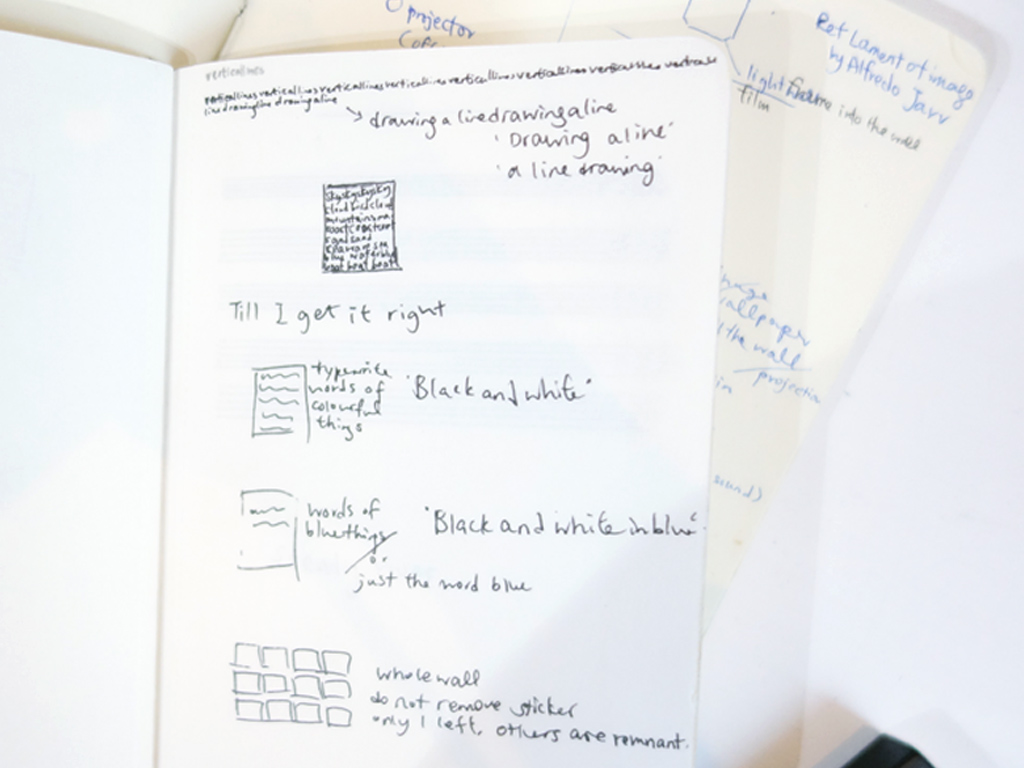 verticallines
verticallinesverticallinesverticallinesverticallinesverticallinesverticallines
linedrawinglinedrawingaline
drawing a linedrawingaline
'Drawing a line'
'a line drawing'
skyskyskysky
cloudbirdcloud
mountains
sand sand
Till I get it right
typewrite
words of
colourful
things
'Black and white'
words of
bluethings
or
just the word blue
'Black and white in blue'
whole wall
do not remove sticker
only 1 left, others are remnant.
projector
Ref Lament of image
by Alfredo Jarr
light
film
frame into the wall
image
wallpaper
the wall
projection
in
sound)